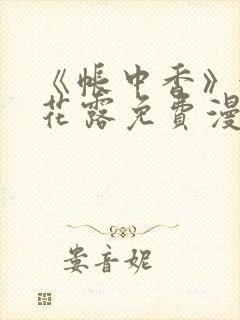 《帐中香》
花露免费漫
娄音妮